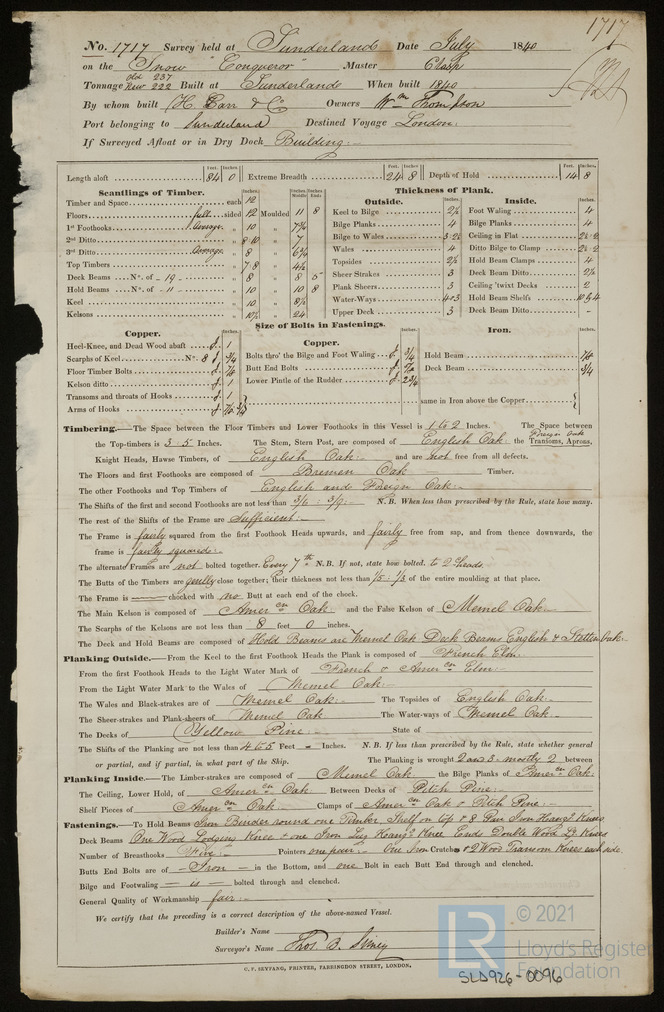 1717
No. 1717 Survey held at Sunderland Date July 1840
on the Snow "Conqueror" Master Clasp
Tonnage old 237 New 222 Built at Sunderland When built 1840
By whom built H. Carr & Co Owners Wm Thompson
Port belonging to Sunderland Destined Voyage London
If Surveyed Afloat or in Dry Dock Building
Length aloft 84 0 Extreme Breadth 24 8 Depth of Hold 14 8
Scantlings of Timber.
Timber and Space each 12
Floors full sided 12 Moulded 11 8
1st Foothooks average 10 " 7¾
2nd Ditto 8.10 " 7
3rd Ditto average 8 " 6¾
Top Timbers 7.8 " 4½
Deck Beams No. of 19 8 " 8 5
Hold Beams No. of 11 10 " 10 8
Keel 10 " 8½
Kelsons 10½ " 24
Thickness of Plank.
Outside.
Keel to Bilge 2½
Bilge Planks 4
Bilge to Wales 3.2½
Wales 4
Topsides 2½
Sheer Strakes 3
Plank Sheers 3
Water-Ways 4 & 3
Upper Deck 3
Inside.
Foot Waling 4
Bilge Planks 4
Ceiling in Flat 2½.2
Ditto Bilge to Clamp 2½.2
Hold Beam Clamps 4
Deck Beam Ditto 2½
Ceiling 'twixt Decks 2
Hold Beam Shelfs 10 & 4
Deck Beam Ditto
Size of Bolts in Fastenings.
Copper.
Heel-Knee, and Dead Wood abaft 1
Scarphs of Keel No. 8 ¾
Floor Timber Bolts ⅞
Kelson ditto 1
Transoms and throats of Hooks 1
Arms of Hooks ⅞.¾
Copper.
Bolts thro' the Bilge and Foot Waling ¾
Butt End Bolts
Lower Pintle of the Rudder 2¾
Iron.
Hold Beam ⅞
Deck Beam ¾
same in Iron above the Copper
Timbering.—The Space between the Floor Timbers and Lower Foothooks in this Vessel is 1 to 2 Inches. The Space between
the Top-timbers is 3.5 Inches. The Stem, Stern Post, are composed of English Oak the Transoms, Aprons, Foreign Oak
Knight Heads, Hawse Timbers, of English Oak and are not free from all defects.
The Floors and first Foothooks are composed of Bremen Oak Timber.
The other Foothooks and Top Timbers of English and Foreign Oak
The Shifts of the first and second Foothooks are not less than 3/6 : 3/9 N. B. When less than prescribed by the Rule, state how many.
The rest of the Shifts of the Frame are Sufficient
The Frame is fairly squared from the first Foothook Heads upwards, and fairly free from sap, and from thence downwards, the
frame is fairly squared
The alternate Frames are not bolted together. Every 7th N. B. If not, state how bolted. to 2 heads
The Butts of the Timbers are generlly close together; their thickness not less than ⅕ : ⅓ of the entire moulding at that place.
The Frame is chocked with no Butt at each end of the chock.
The Main Kelson is composed of Amercn Oak and the False Kelson of Memel Oak
The Scarphs of the Kelsons are not less than 8 feet 0 inches.
The Deck and Hold Beams are composed of Hold Beams are Memel Oak Deck Beams English & Stettin Oak
Planking Outside.—From the Keel to the first Foothook Heads the Plank is composed of French Elm
From the first Foothook Heads to the Light Water Mark of French & Amercn Elm
From the Light Water Mark to the Wales of Memel Oak
The Wales and Black-strakes are of Memel Oak The Topsides of English Oak
The Sheer-strakes and Plank-sheers of Memel Oak The Water-ways of Memel Oak
The Decks of Yellow Pine State of
The Shifts of the Planking are not less than 4 to 5 Feet Inches. N. B. If less than prescribed by the Rule, state whether general
or partial, and if partial, in what part of the Ship. The Planking is wrought 2 and 3 : mostly 2 between
Planking Inside.—The Limber-strakes are composed of Memel Oak the Bilge Planks of Amercn Oak
The Ceiling, Lower Hold, of Amercn Oak Between Decks of Pitch Pine
Shelf Pieces of Amercn Oak Clamps of Amercn Oak & Pitch Pine
Fastenings.—To Hold Beams Iron Binder round one Timber, Shelf on top & 8 Pair Iron Hangg Knees
Deck Beams One Wood Lodging Knee & one Iron Lug Hangg Knee Ends Double Wood Lg Knees
Number of Breasthooks Five Pointers one pair One Iron Crutch & 2 Wood Transom Knees each side
Butts End Bolts are of Iron in the Bottom, and one Bolt in each Butt End through and clenched.
Bilge and Footwaling " bolted through and clenched.
General Quality of Workmanship fair
We certify that the preceding is a correct description of the above-named Vessel.
Builder's Name
Surveyor's Name Thos. B. Simey
C. F. SEYFANG, PRINTER, FARRINGDON STREET, LONDON.
LR © 2021
Lloyd's Register
Foundation
SLD926-0096